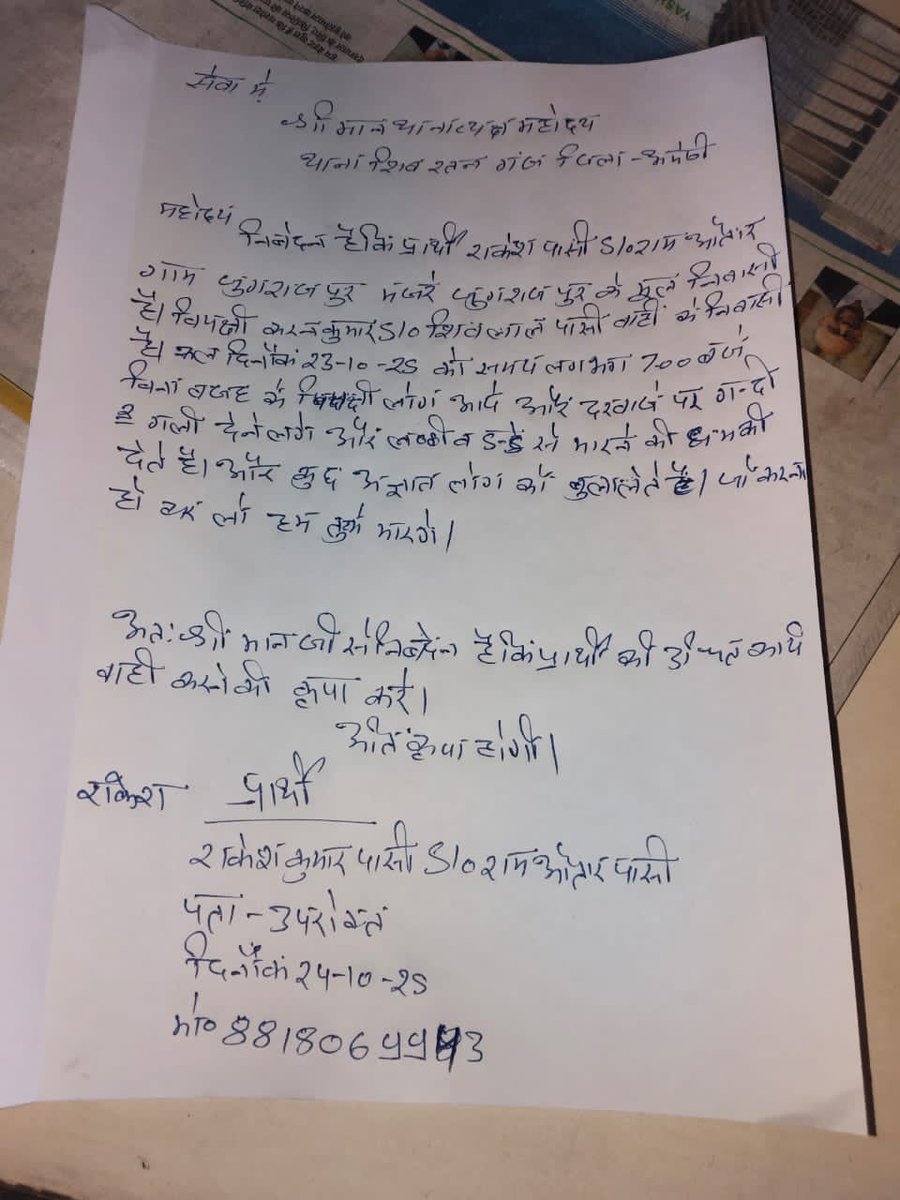 सेवा में,
श्री मान थानाध्यक्ष महोदय
थाना शिव रतन गंज जिला - अमेठी
महोदय
निवेदन है कि प्रार्थी राकेश पासी S/o राम औतार
ग्राम पुर मजरे पुर के मूल निवासी
है। विपक्षी करन कुमार S/o शिवलाल पासी वाही के निवासी
है। कल दिनाँक 23-10-25 को समय लगभग 700 बजे
विना वजह के विपक्षी लोग आये और दरवाजे पर गन्दी
2 गाली देने लगे और लाठी व डन्डे से मारने की धमकी
देते है। और कुछ अज्ञात लोग को बुला लेते है। जो करना
हो कर लो हम तुझे मारेगे।
अतः श्री मान जी से निवेदन है कि प्रार्थी की उचित कार्य
वाही करने की कृपा करे।
अति कृपा होगी।
राकेश प्रार्थी
राकेश कुमार पासी S/o राम औतार पासी
पता - उपरोक्त
दिनाँक 24-10-25
मो०